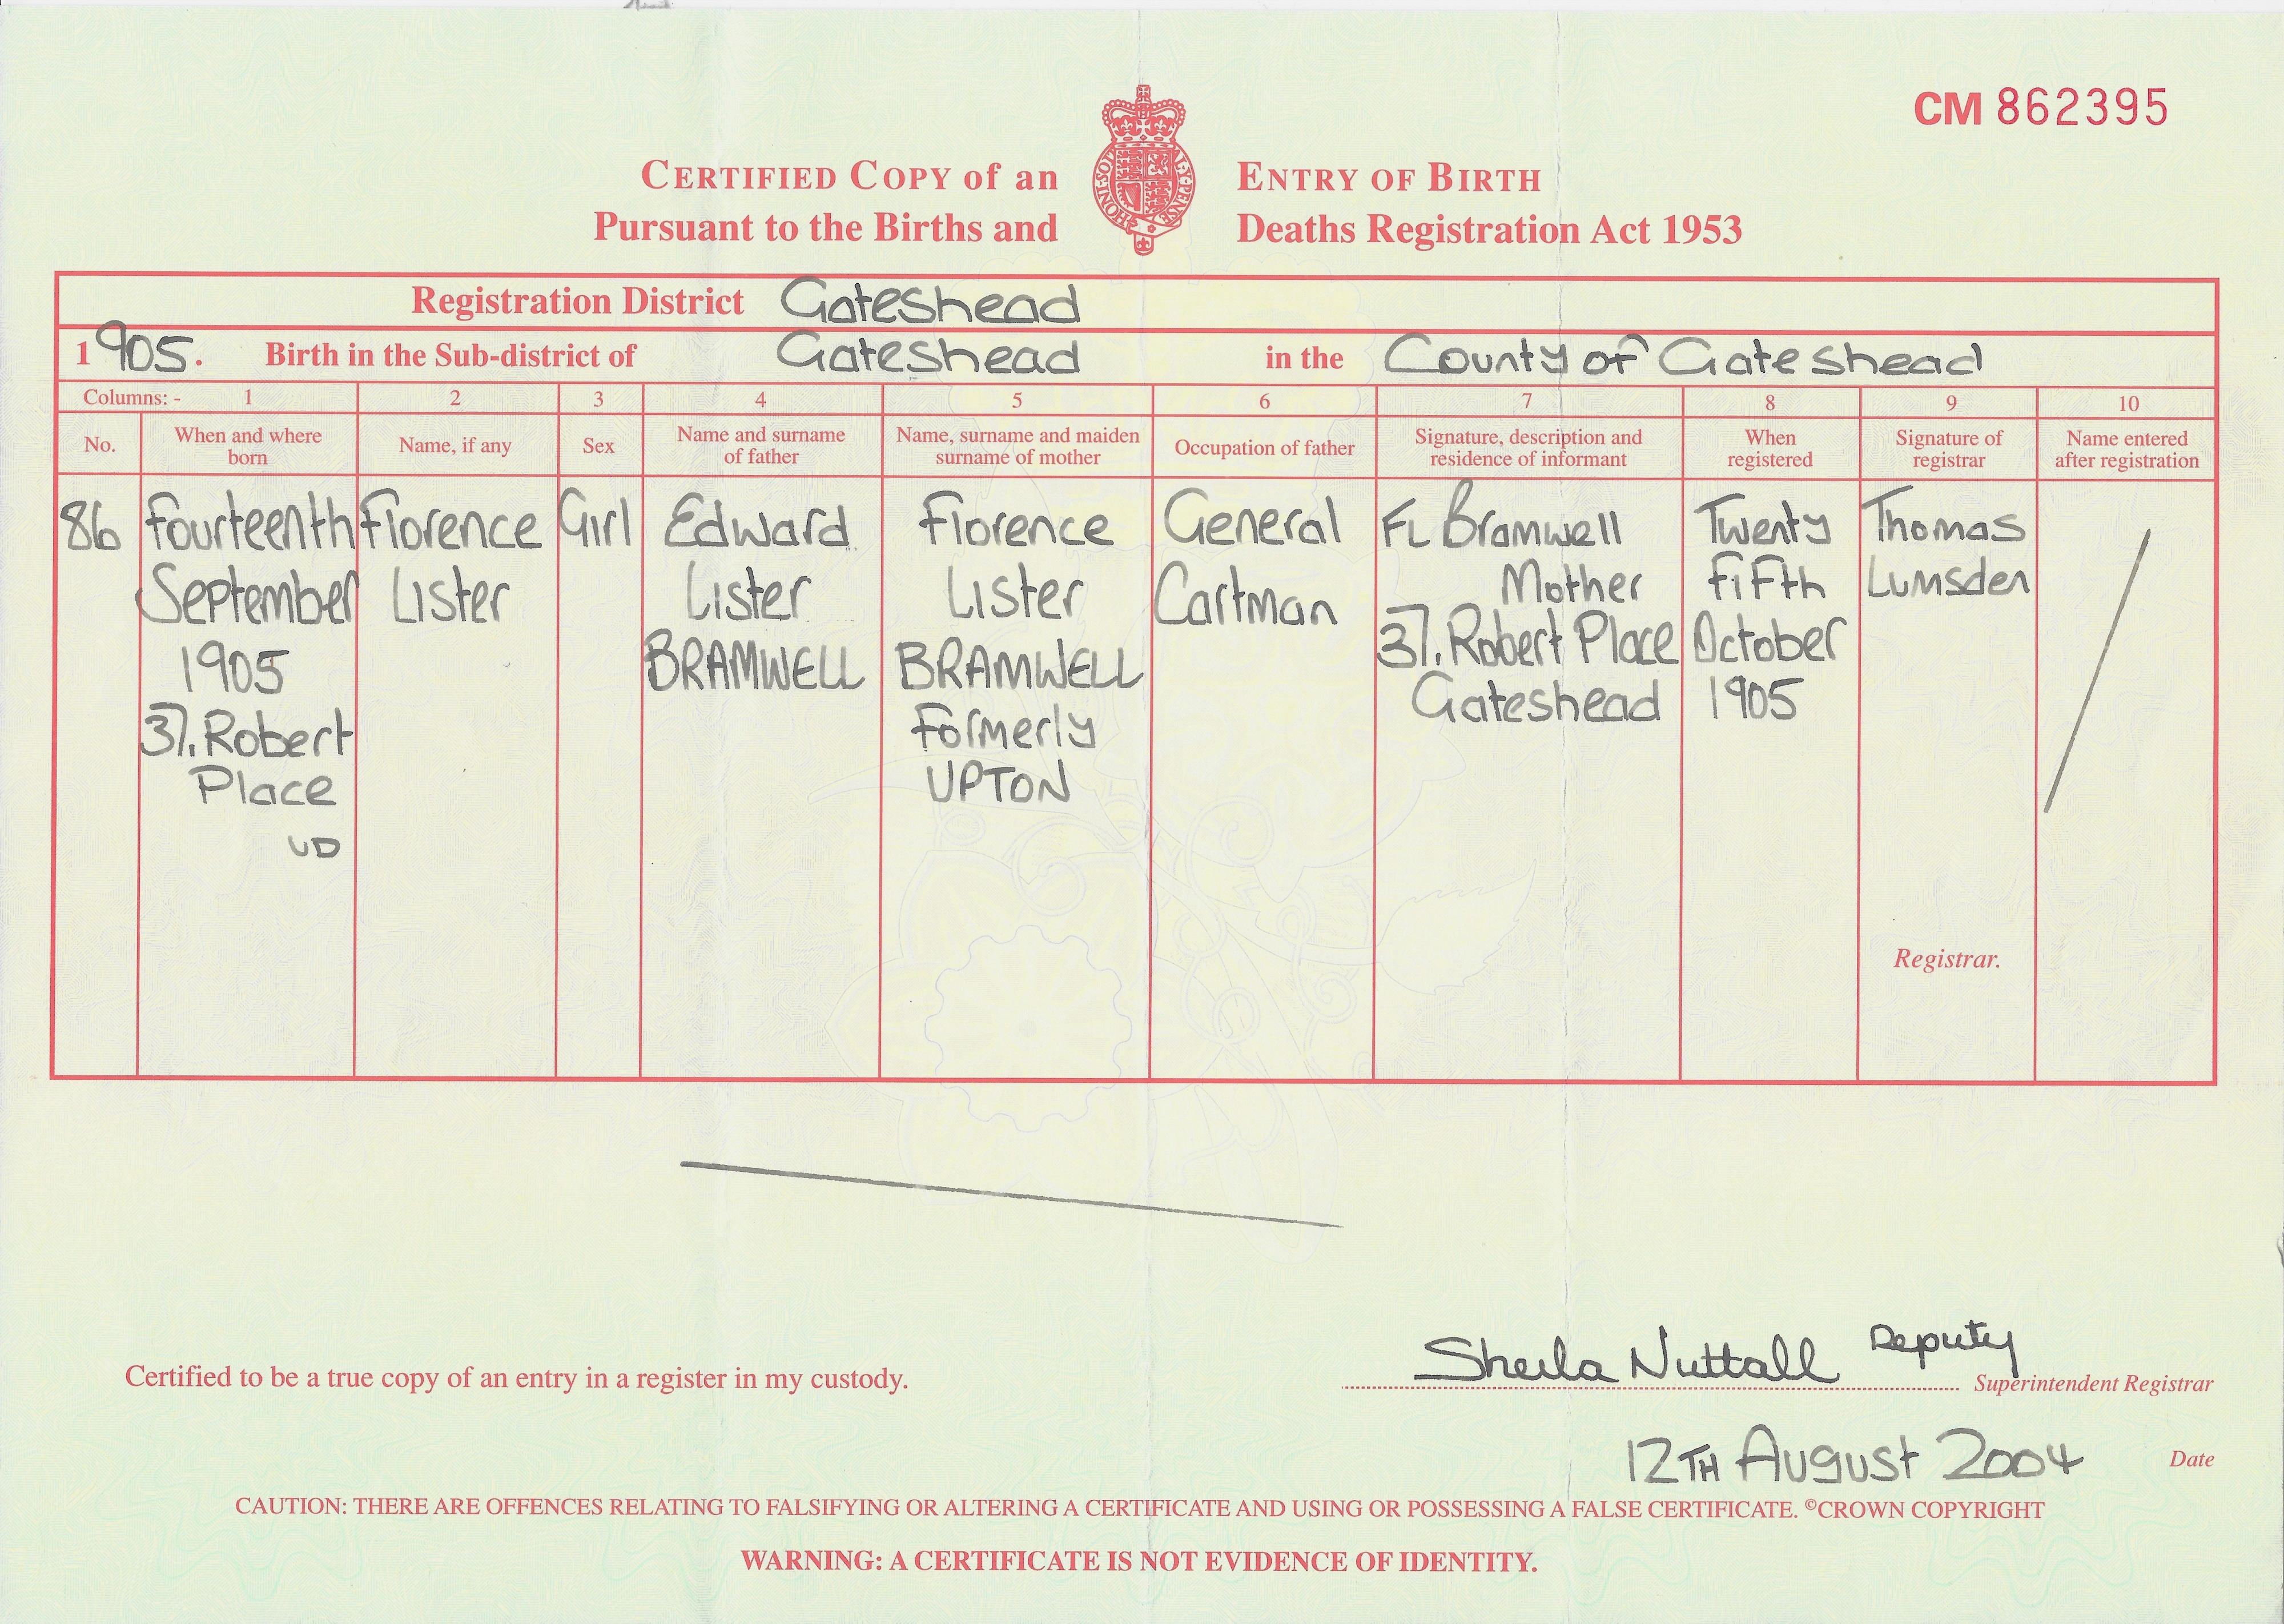 CM 862395
CERTIFIED COPY of an ENTRY OF BIRTH
Pursuant to the Births and Deaths Registration Act 1953
HONI·SOIT AL·Y·PENCE
Registration District Gateshead
1905. Birth in the Sub-district of Gateshead in the County of Gateshead
Columns: - 1 2 3 4 5 6 7 8 9 10
No.
When and where
born
Name, if any
Sex
Name and surname
of father
Name, surname and maiden
surname of mother
Occupation of father
Signature, description and
residence of informant
When
registered
Signature of
registrar
Name entered
after registration
86
Fourteenth
September
1905
37, Robert
Place
UD
Florence
Lister
Girl
Edward
Lister
BRAMWELL
Florence
Lister
BRAMWELL
Formerly
UPTON
General
Cartman
FL Bramwell
Mother
37, Robert Place
Gateshead
Twenty
Fifth
October
1905
Thomas
Lumsden
Registrar.
Certified to be a true copy of an entry in a register in my custody.
Sheila Nuttall Deputy
Superintendent Registrar
12TH August 2004 Date
CAUTION: THERE ARE OFFENCES RELATING TO FALSIFYING OR ALTERING A CERTIFICATE AND USING OR POSSESSING A FALSE CERTIFICATE. ©CROWN COPYRIGHT
WARNING: A CERTIFICATE IS NOT EVIDENCE OF IDENTITY.